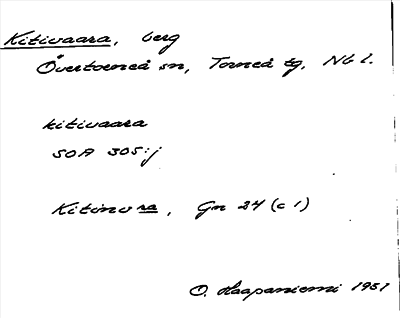 Kitivaara, berg
Övertorneå sn, Torneå tg, Nb l.
kitivaara
SOA 305:j
Kitinvra, Gn 24 (c 1)
O. Haapaniemi 1951